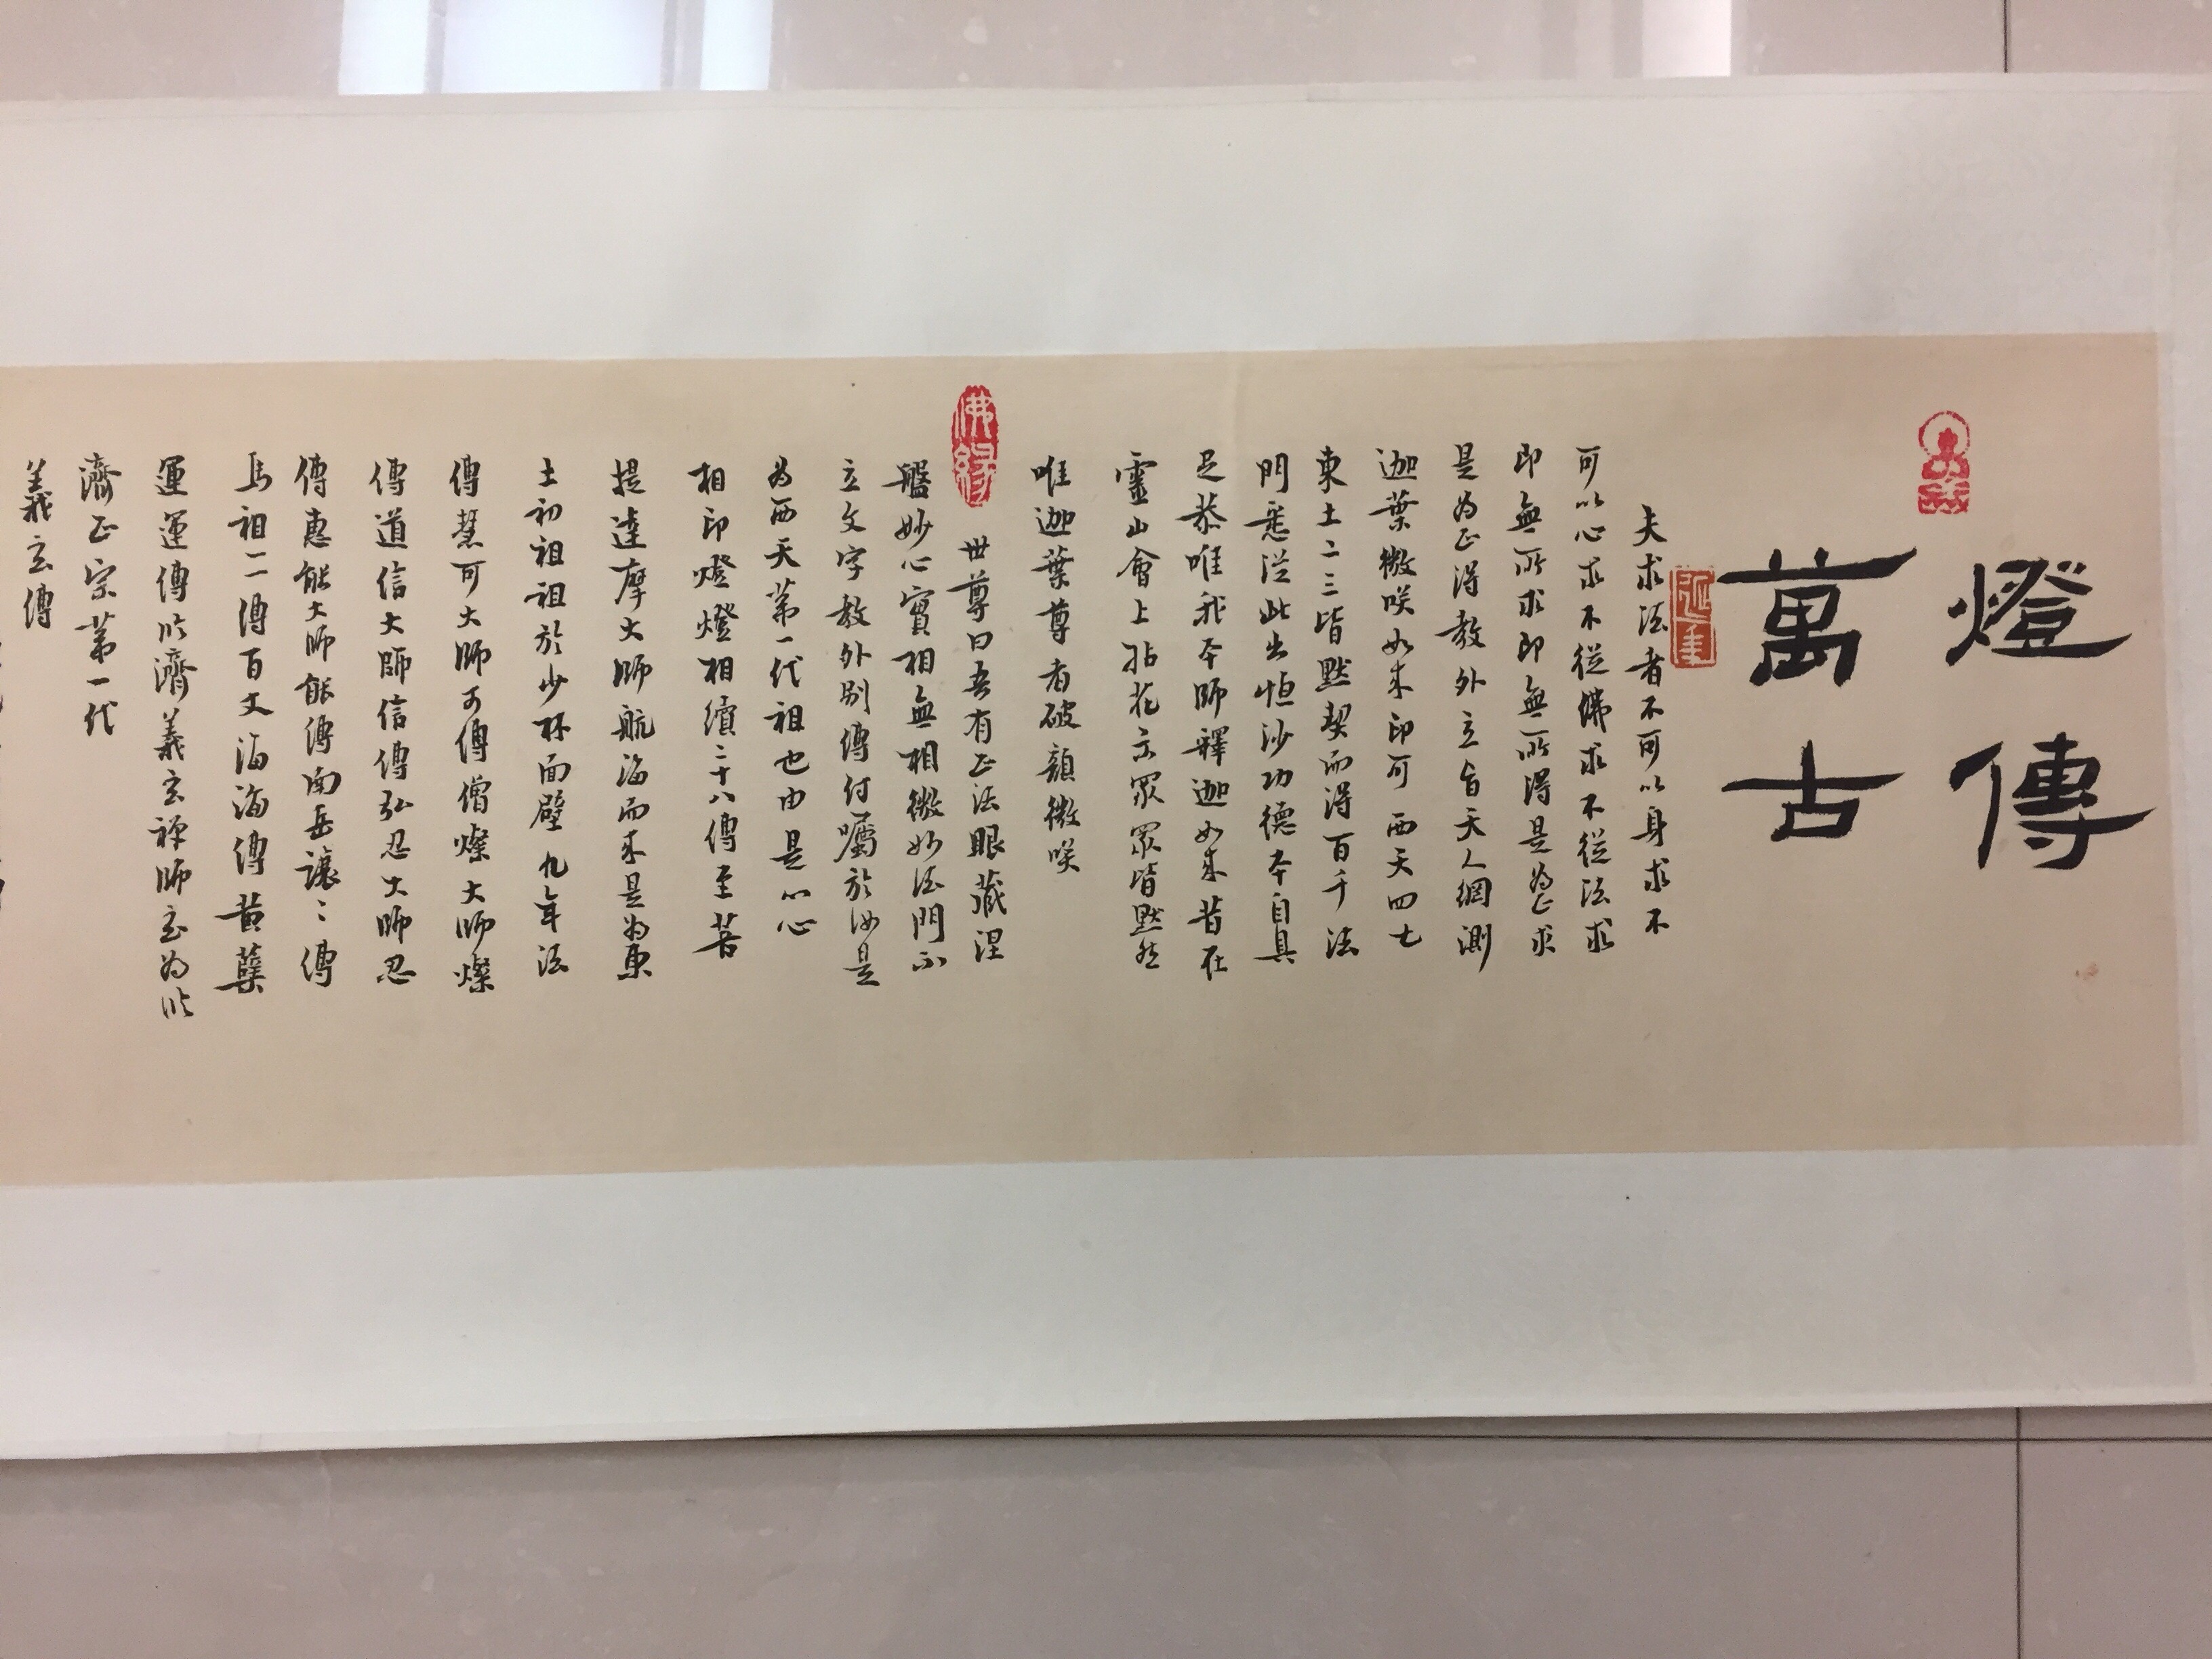 燈傳
萬古
夫求法者不可以身求不
可以心求不從佛求不從法求
即無所求即無所得是為正求
是為正得教外立旨天人網測
迦葉微咲如来印可西天四七
東土二三皆默契而得百千法
門悉從此出恒沙功德本自具
足恭唯我本師釋迦如来昔在
靈山會上拈花示眾眾皆默然
唯迦葉尊者破顏微咲
佛緣
世尊曰吾有正法眼藏涅
槃妙心實相無相微妙法門不
立文字教外別傳付囑於汝是
為西天第一代祖也由是以心
相印燈燈相續二十八傳至菩
提達摩大師航海而来是為東
土初祖祖於少林面壁九年法
傳慧可大師可傳僧燦大師燦
傳道信大師信傳弘忍大師忍
傳惠能大師能傳南岳讓〻傳
馬祖一一傳百丈海海傳黃蘗
運運傳臨濟義玄禪師玄為臨
濟正宗第一代
義玄傳